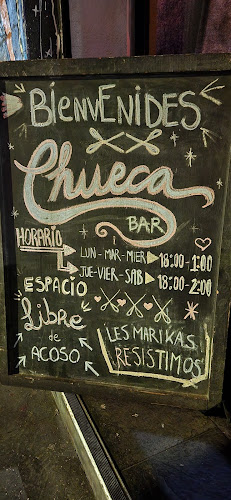 BIENVENIDES
Chueca
BAR
HORARIO
LUN-MAR-MIER 18:00-1:00
JUE-VIER-SAB 18:00-2:00
ESPACIO
Libre
de
ACOSO
LES MARIKAS
RESISTIMOS